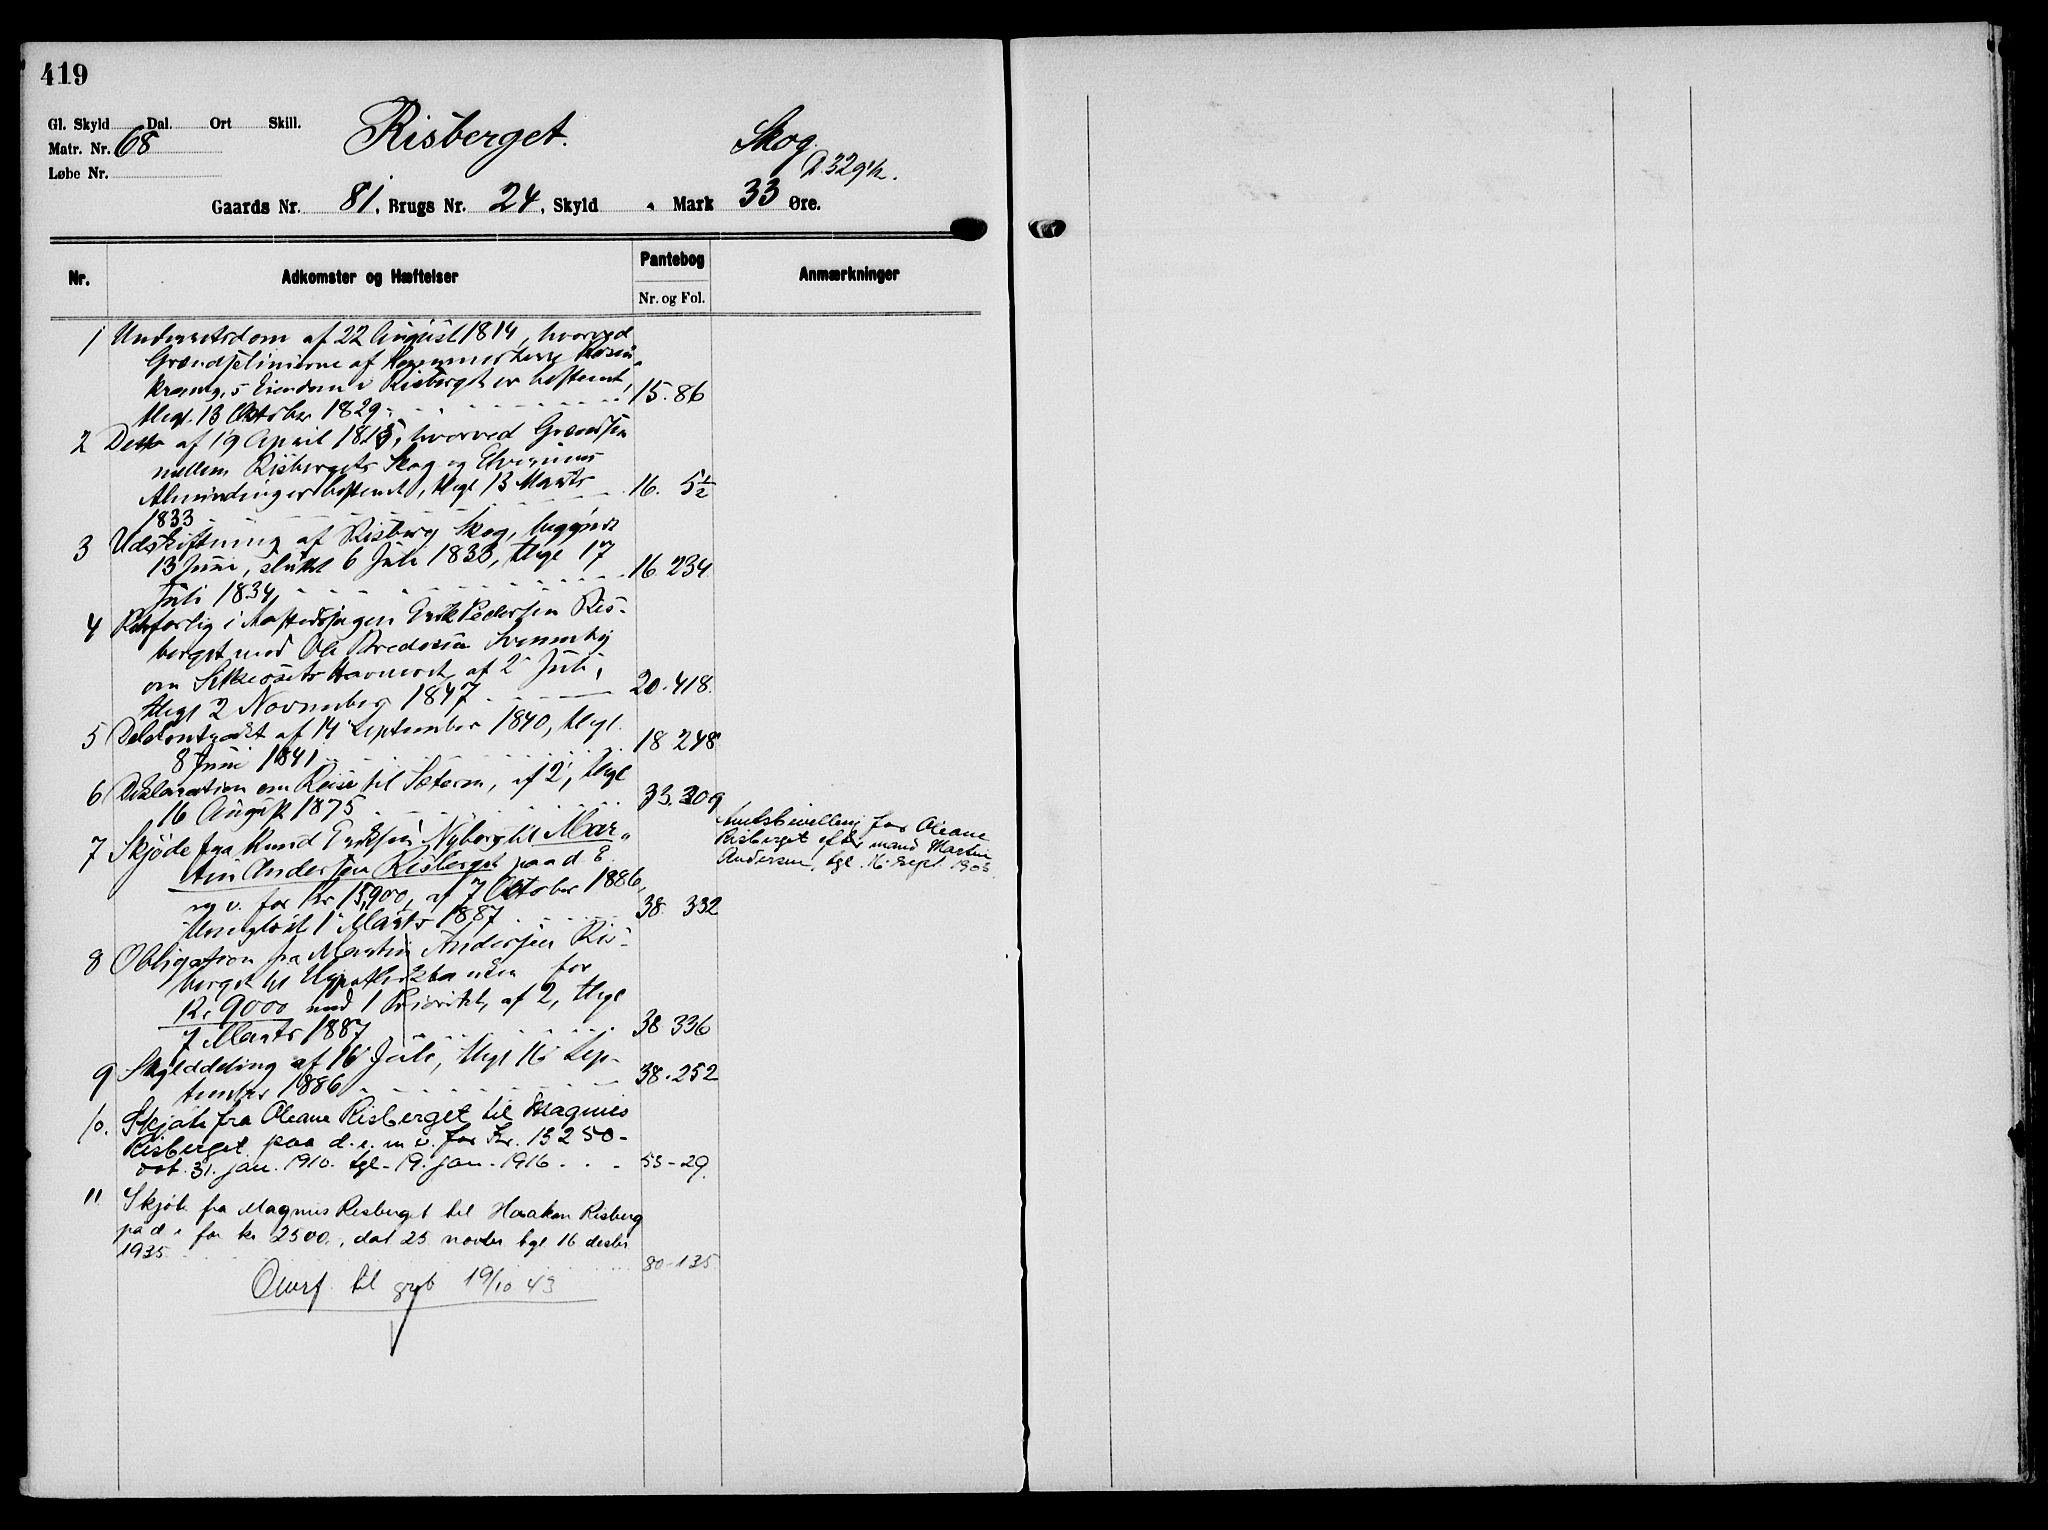 419
Gl. Skyld Dal. Ort Skill.
Matr. Nr. 68
Løbe Nr.
Risberget. Skog.
Gaards Nr. 81, Brugs Nr. 24, Skyld Mark 33 Øre.
Nr. Adkomster og Hæftelser Pantebog Anmærkninger
Nr. og Fol.
1 Underretsdom af 22 August 1814, hvorved
Grændselinierne af
Eiendom i Risberget er bestemt,
thgl. 13 Oktober 1829. 15. 86
2 Ditto af 19 April 1815, hvorved Grændsen
mellem Risbergets Skog og Elverums
Almindinger bestemt, thgl 13 Marts
1833 16. 5 1/2
3 Udskiftning af Risberg Skog, begyndt
13 Juni, sluttet 6 Juli 1833, thgl 17
Juli 1834, 16. 234.
4 Retsforlig i Aastedssagen Erik Pedersen Ris-
berget mod Ole
om Havneret, af 2 Juli,
thgl 2 November 1847 20. 418.
5 Delekontrakt af 14 September 1840, thgl.
8 Juni 1841 18 248
6 Deklaration om til Sæteren, af 2, thgl
16 August 1875 33. 309
7 Skjøde fra Knud Eriksen Nyborg til Mar-
tin Andersen Risberget paa d. E.
m. v. for Kr 15,900, af 7 Oktober 1886,
thinglæst 1 Marts 1887 38. 332
Amtsbevilling for Oleane
Risberget efter mand Martin
Andersen, tgl. 16 sept. 1903.
8 Obligation fra Martin Andersen Ris-
berget til Hypothekbanken for
Kr. 9000 med 1 Prioritet, af 2, thgl
7 Marts 1887 38 336
9 Skylddeling af 16 Juli, thgl 16 Sep-
tember 1886 38. 252
10. Skjøte fra Oleane Risberget til Magnus
Risberget paa d. e. m v. for Kr. 13250-
dat. 31. jan. 1910. tgl. 19. jan. 1916 . . . 53-29.
11 Skjøte fra Magnus Risberget til Haakon Risberg
på d e for kr 2500., dat 23 novbr tgl 16 desbr
1935 80-135
Overf. til 19/10 43